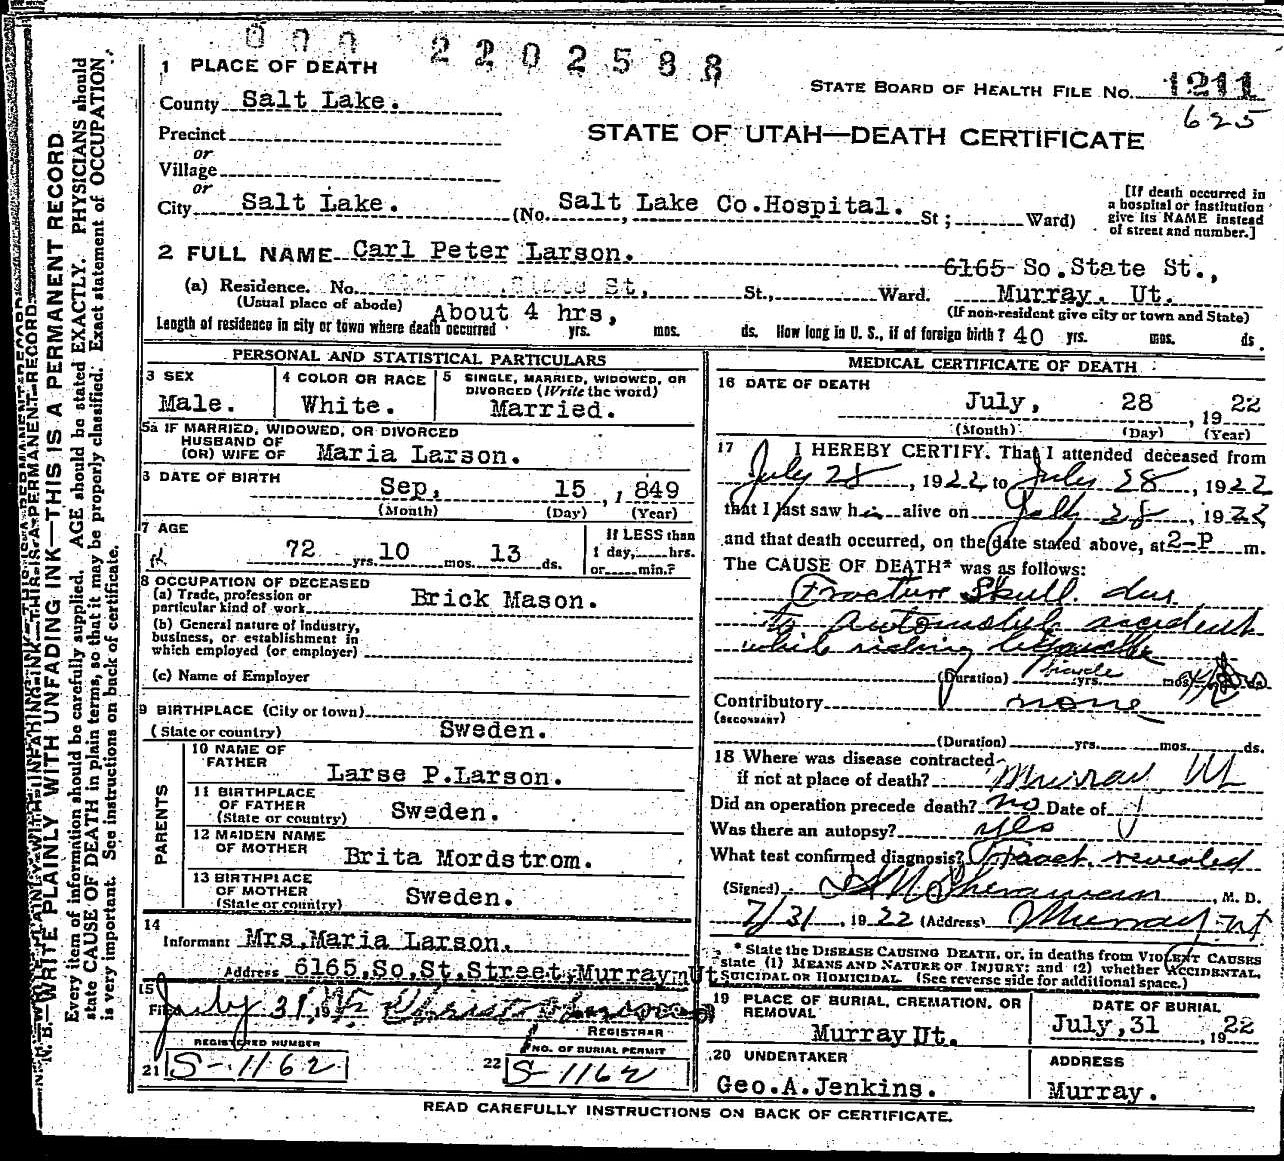 000 2202588
1 PLACE OF DEATH
STATE BOARD OF HEALTH FILE No. 1211
County Salt Lake.
625
Precinct
STATE OF UTAH—DEATH CERTIFICATE
or
Village
or
City Salt Lake. (No. Salt Lake Co.Hospital. St; Ward)
[If death occurred in
a hospital or institution
give its NAME instead
of street and number.]
2 FULL NAME Carl Peter Larson.
6165 So.State St.,
(a) Residence. No. State St, St., Ward. Murray. Ut.
(Usual place of abode) (If non-resident give city or town and State)
Length of residence in city or town where death occurred About 4 hrs, yrs. mos. ds. How long in U. S., if of foreign birth? 40 yrs. mos. ds.
PERSONAL AND STATISTICAL PARTICULARS
3 SEX
Male.
4 COLOR OR RACE
White.
5 SINGLE, MARRIED, WIDOWED, OR
DIVORCED (Write the word)
Married.
5a IF MARRIED, WIDOWED, OR DIVORCED
HUSBAND OF
(OR) WIFE OF Maria Larson.
6 DATE OF BIRTH
Sep, 15, 1849
(Month) (Day) (Year)
7 AGE
72 yrs. 10 mos. 13 ds.
If LESS than
1 day,......hrs.
or......min.?
8 OCCUPATION OF DECEASED
(a) Trade, profession or
particular kind of work Brick Mason.
(b) General nature of industry,
business, or establishment in
which employed (or employer)
(c) Name of Employer
9 BIRTHPLACE (City or town)
(State or country) Sweden.
PARENTS
10 NAME OF
FATHER
Larse P.Larson.
11 BIRTHPLACE
OF FATHER
(State or country) Sweden.
12 MAIDEN NAME
OF MOTHER
Brita Mordstrom.
13 BIRTHPLACE
OF MOTHER
(State or country) Sweden.
14
Informant Mrs,Maria Larson.
Address 6165,So.St.Street,Murray Ut
15
Filed July 31, 19
REGISTRAR
REGISTERED NUMBER
21 S-1162
NO. OF BURIAL PERMIT
22 S-1162
MEDICAL CERTIFICATE OF DEATH
16 DATE OF DEATH
July, 28, 1922
(Month) (Day) (Year)
17 I HEREBY CERTIFY. That I attended deceased from
July 28, 1922, to July 28, 1922
that I last saw him alive on July 28, 1922
and that death occurred, on the date stated above, at 2-P m.
The CAUSE OF DEATH* was as follows:
Fracture Skull due
to Automobile accident
while riding
bicycle
(Duration) yrs. mos. ds.
Contributory none
(SECONDARY)
(Duration) yrs. mos. ds.
18 Where was disease contracted
if not at place of death? Murray Ut
Did an operation precede death? no Date of
Was there an autopsy? yes
What test confirmed diagnosis? revealed
(Signed) , M. D.
7/31, 1922 (Address) Murray Ut
* State the DISEASE CAUSING DEATH, or, in deaths from VIOLENT CAUSES
state (1) MEANS AND NATURE OF INJURY; and (2) whether ACCIDENTAL,
SUICIDAL OR HOMICIDAL. (See reverse side for additional space.)
19 PLACE OF BURIAL, CREMATION, OR
REMOVAL
Murray Ut.
DATE OF BURIAL
July,31, 1922
20 UNDERTAKER
Geo.A.Jenkins.
ADDRESS
Murray.
READ CAREFULLY INSTRUCTIONS ON BACK OF CERTIFICATE.
N. B.—WRITE PLAINLY WITH UNFADING INK—THIS IS A PERMANENT RECORD
Every item of information should be carefully supplied. AGE should be stated EXACTLY. PHYSICIANS should
state CAUSE OF DEATH in plain terms, so that it may be properly classified. Exact statement of OCCUPATION
is very important. See instructions on back of certificate.